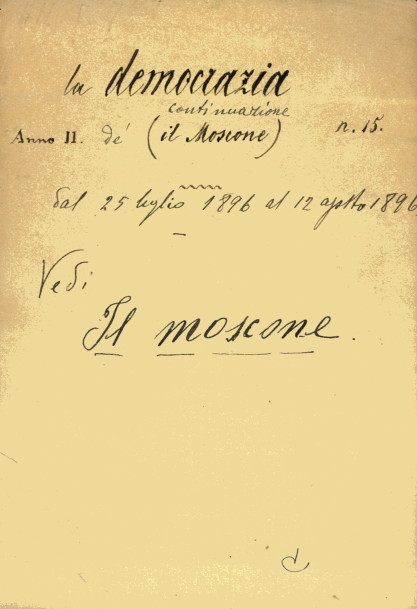 la democrazia
continuazione
Anno II. de' (il Moscone) n. 15.
dal 25 luglio 1896 al 12 agosto 1896
Vedi
Il moscone.